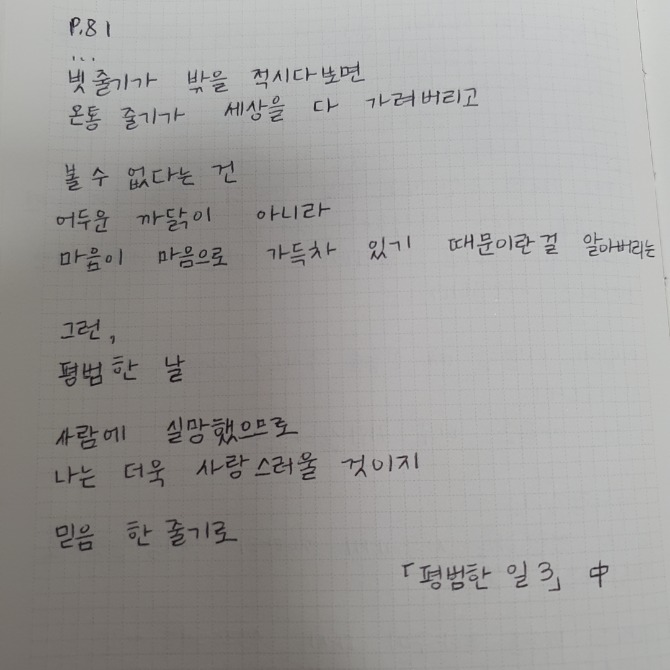 P.81
...
빗줄기가 밖을 적시다보면
온통 줄기가 세상을 다 가려버리고
볼 수 없다는 건
어두운 까닭이 아니라
마음이 마음으로 가득차 있기 때문이란걸 알아버리는
그런,
평범한 날
사람에 실망했으므로
나는 더욱 사랑스러울 것이지
믿음 한 줄기로
「평범한 일 3」 中